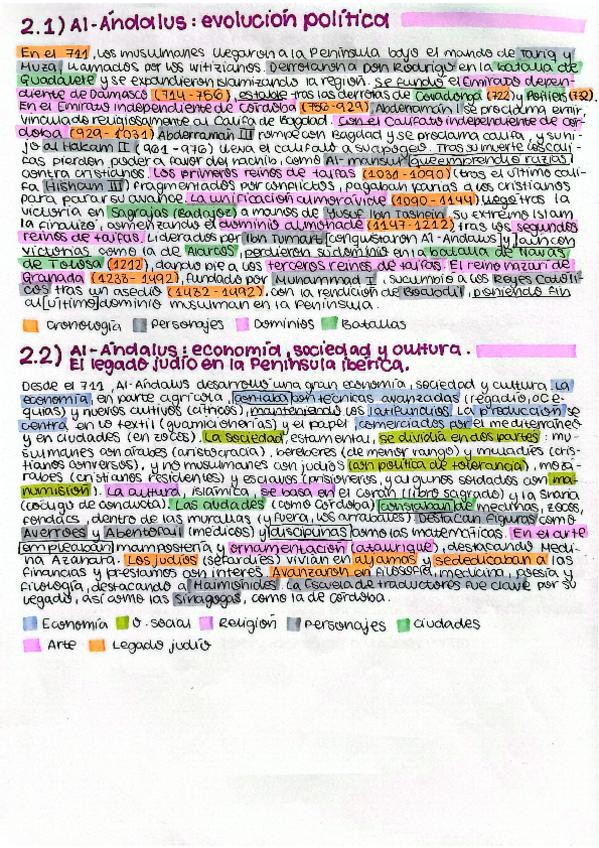 2.1) Al-Ándalus: evolución política
En el 711, los musulmanes llegaron a la Península bajo el mando de Tariq y
Muza, llamados por los witizianos. Derrotaron a Don Rodrigo en la batalla de
Guadalete y se expandieron islamizando la región. Se fundó el Emirato depen-
diente de Damasco (714-756), estable tras las derrotas de Covadonga (722) y Poitiers (732).
En el Emirato independiente de Córdoba (756-929), Abderramán I se proclama emir,
vinculado religiosamente al Califa de Bagdad. Con el Califato independiente de Cór-
doba (929-1031) Abderramán III rompe con Bagdad y se proclama califa, y su hi-
jo Al Hakam II (961-976) lleva el califato a su apogeo. Tras su muerte los cali-
fas pierden poder a favor del hachib, como Al-mansur que emprendió razias
contra cristianos. Los primeros reinos de taifas (1031-1090) (tras el último cali-
fa Hisham III) fragmentados por conflictos, pagaban parias a los cristianos
para parar su avance. La unificación almorávide (1090-1144) llegó tras la
victoria en Sagrajas (Badajoz) a manos de Yusuf Ibn Tashfin, su extremo Islam
la finalizó, comenzando el dominio almohade (1147-1212) tras los segundos
reinos de taifas. Liderados por Ibn Tumart conquistaron Al-Andalus y aun con
victorias como la de Alarcos, perdieron su dominio en la batalla de Navas
de Tolosa (1212), dando pie a los terceros reinos de taifas. El reino nazarí de
Granada (1238-1492), fundado por Muhammad I, sucumbió a los Reyes Católi-
cos tras un asedio (1482-1492), con la rendición de Boabdil, poniendo fin
al último dominio musulmán en la Península.
Cronología Personajes Dominios Batallas
2.2) Al-Ándalus: economía, sociedad y cultura.
El legado judío en la Península ibérica.
Desde el 711, Al-Ándalus desarrolló una gran economía, sociedad y cultura. La
economía, en parte agrícola, contaba con técnicas avanzadas (regadío, ace-
quias) y nuevos cultivos (cítricos), manteniendo los latifundios. La producción se
centra en lo textil (guarnicionerías) y el papel, comerciados por el mediterráneo
y en ciudades (en zocos). La sociedad, estamental, se dividía en dos partes: mu-
sulmanes con árabes (aristocracia), bereberes (de menor rango) y muladíes (cris-
tianos conversos), y no musulmanes con judíos (con política de tolerancia), mozá-
rabes (cristianos resistentes) y esclavos (prisioneros, y algunos soldados con ma-
numisión). La cultura, islámica, se basa en el corán (libro sagrado) y la sharia
(código de conducta). Las ciudades (como Córdoba) constaban de medinas, zocos,
fondacs, dentro de las murallas (y fuera, los arrabales). Destacan figuras como
Averroes y Abentofail (médicos) y disciplinas como las matemáticas. En el arte
empleaban mampostería y ornamentación (ataurique), destacando Medi-
na Azahara. Los judíos (sefardíes) vivían en aljamas y se dedicaban a las
finanzas y préstamos con interés. Avanzaron en filosofía, medicina, poesía y
filología, destacando a Maimónides. La Escuela de traductores fue clave por su
legado, así como las sinagogas, como la de Córdoba.
Economía O. social Religión Personajes Ciudades
Arte Legado judío